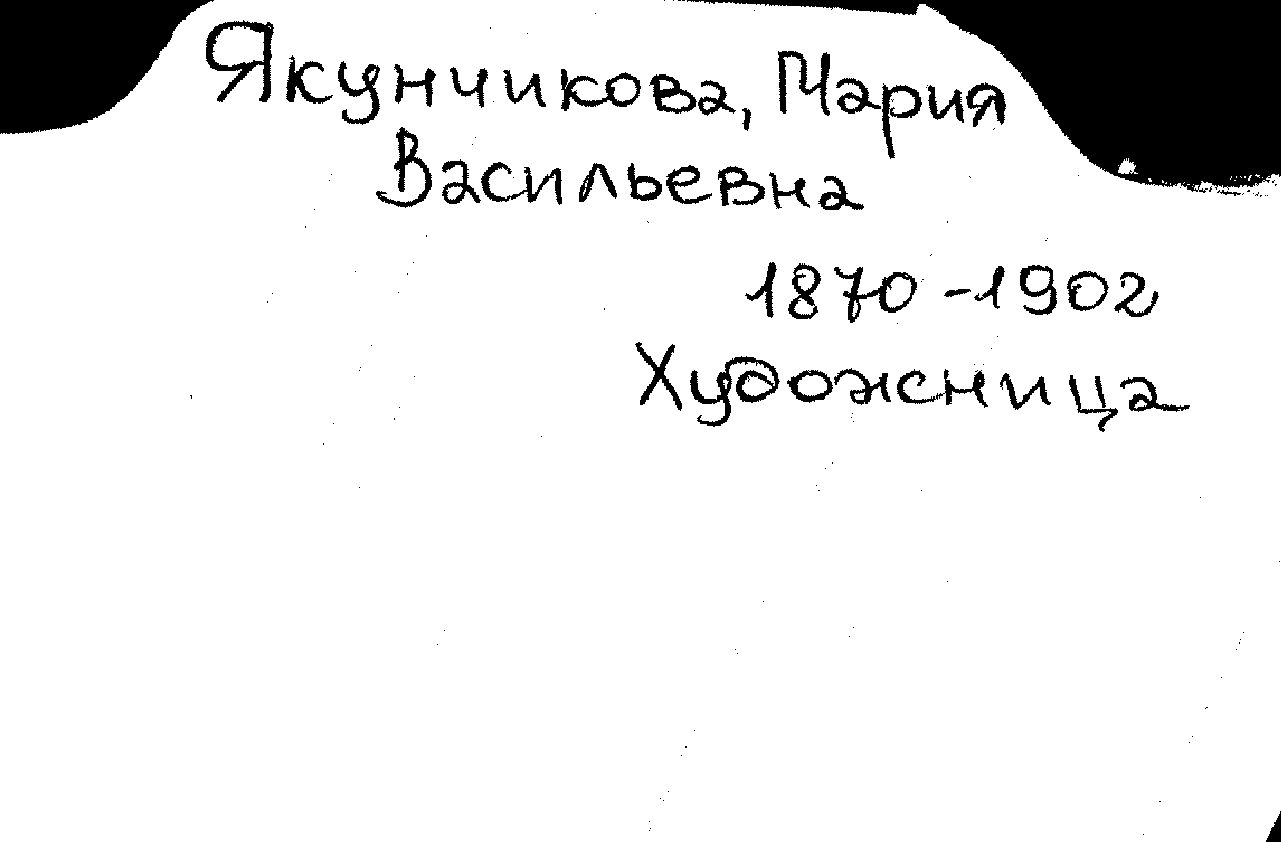 Якунчикова, Мария
Васильевна
1870-1902
Художница